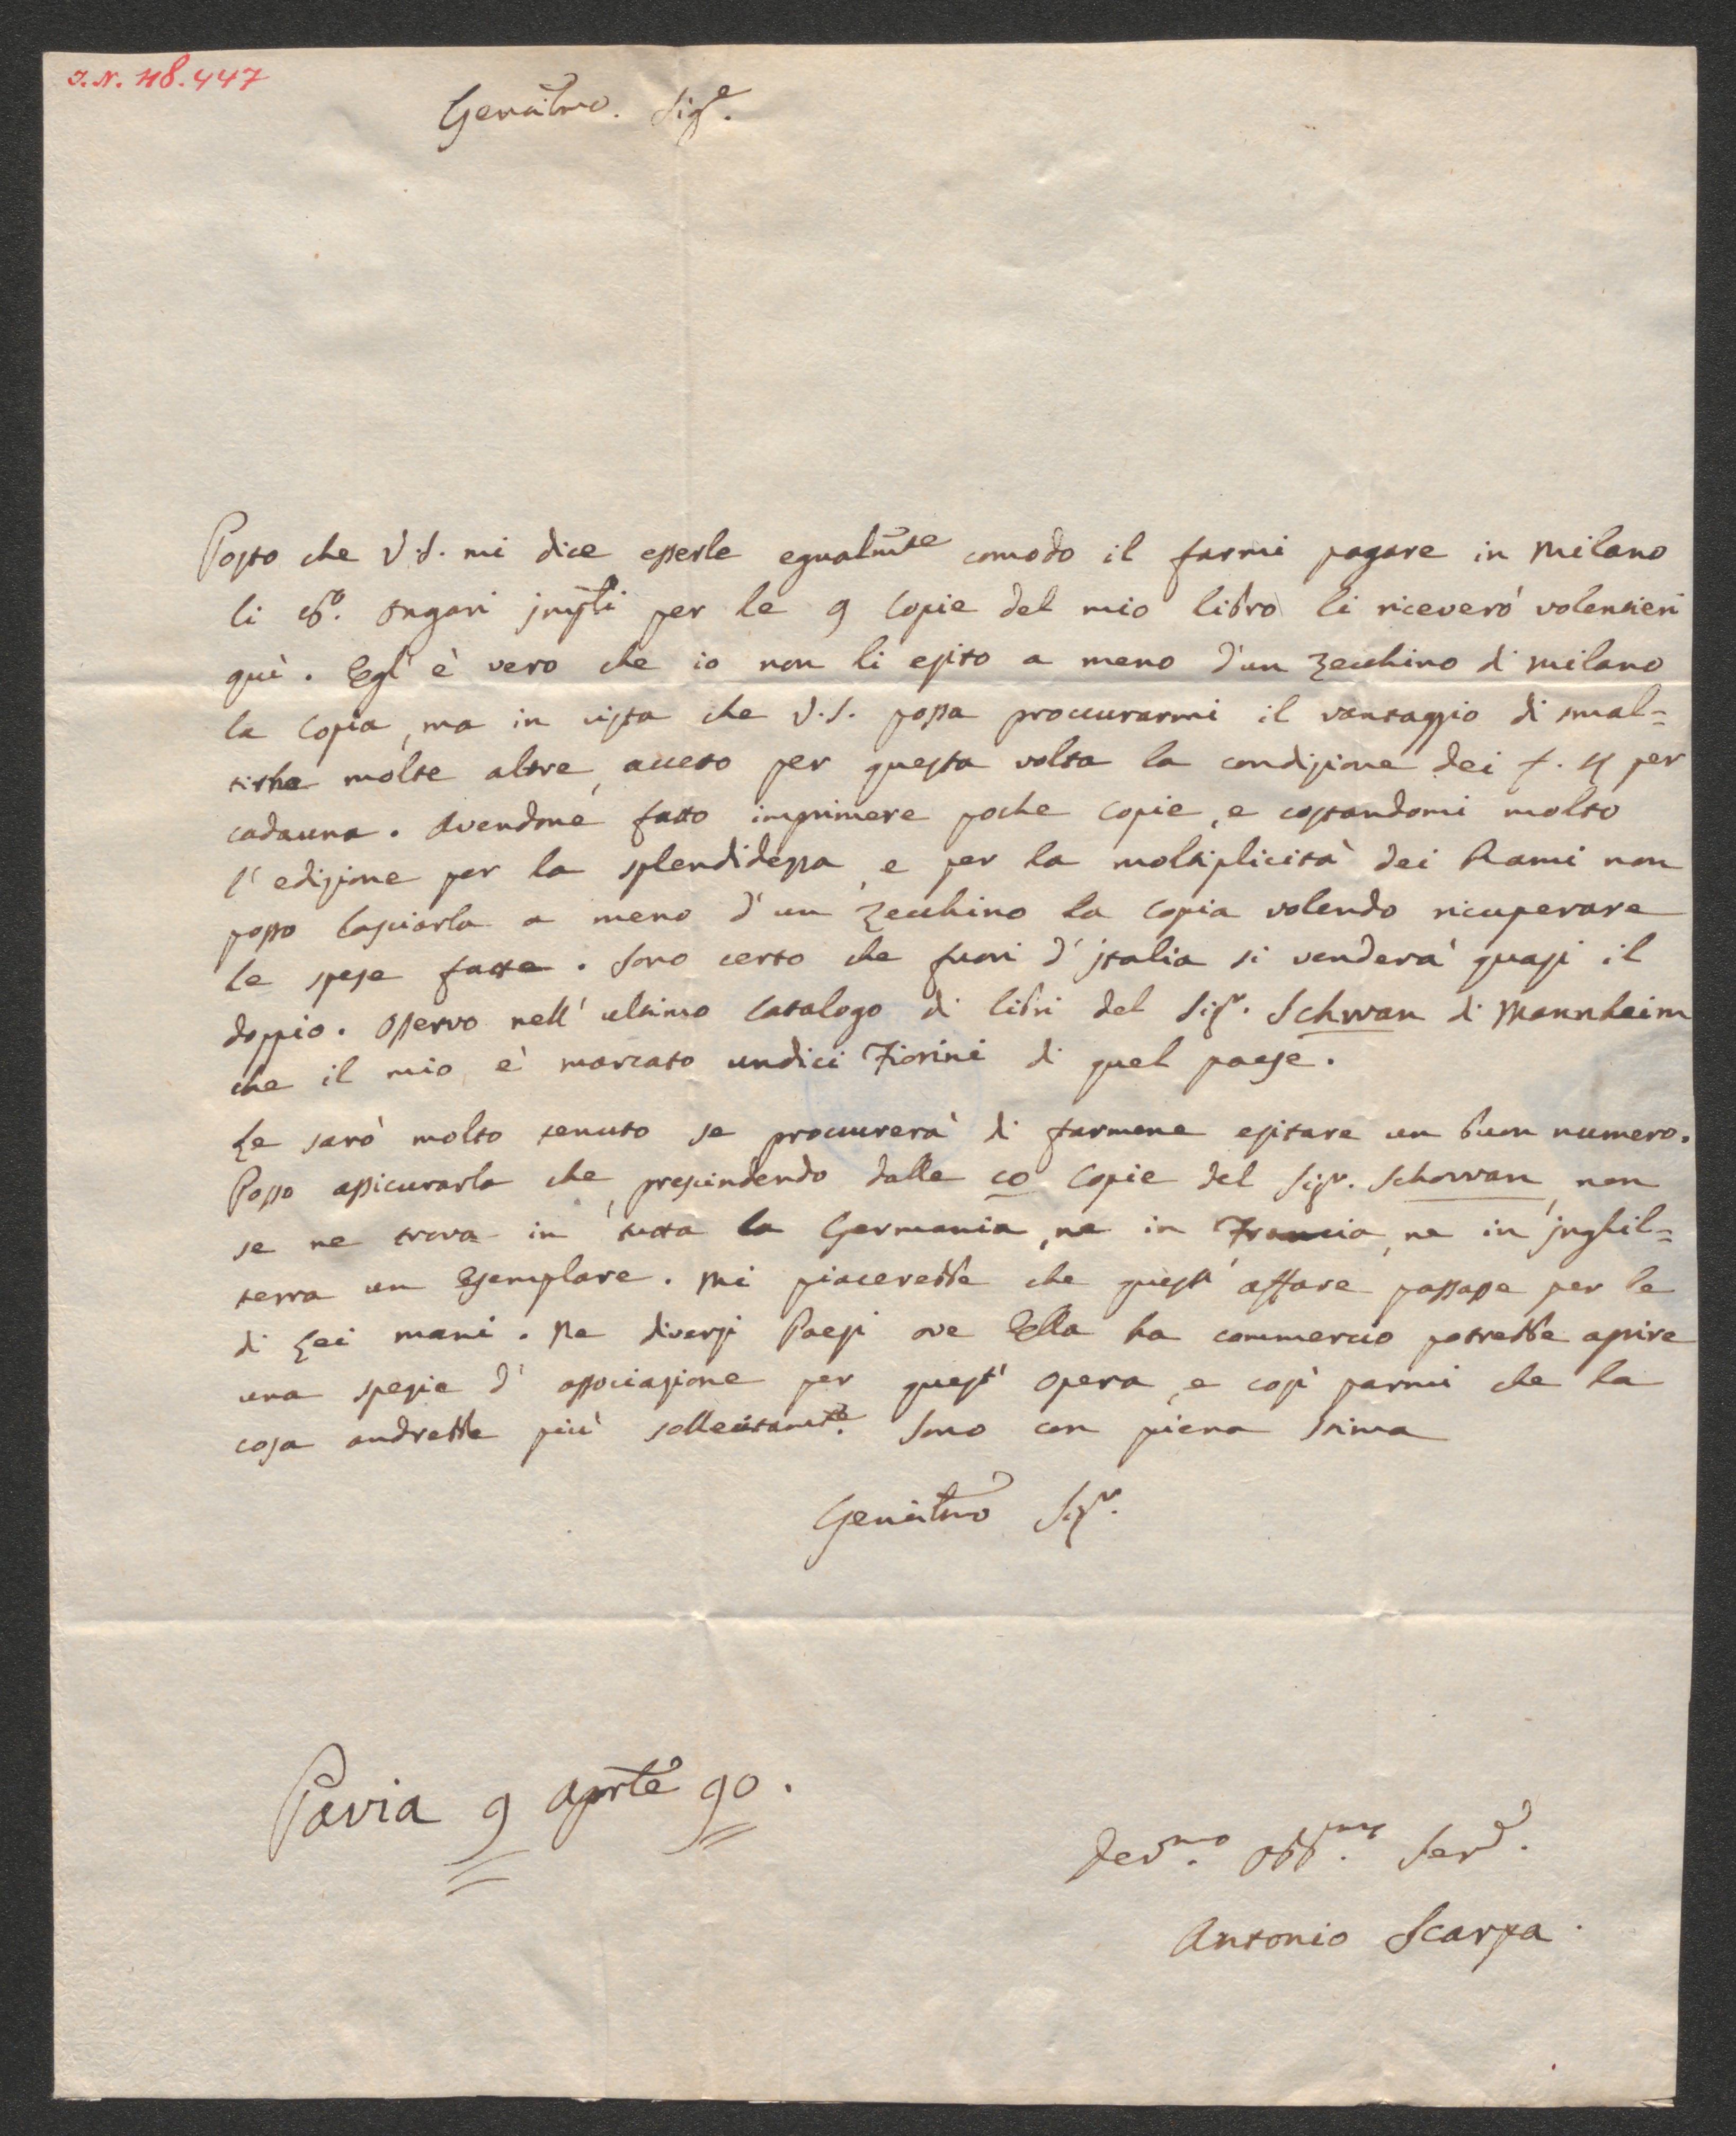 J.N. 48.447
Genãtmo. Sig.e
Posto che V.S. mi dice esserle egualmte comodo il farmi pagare in Milano
li Ongari per le 9 Copie del mio libro li riceverò volentieri
quì. Egl' è vero che io non li esito a meno d'un zecchino di Milano
la Copia, ma in vista che V.S. possa proccurarmi il vantaggio di smal=
tirne molte altre, acceto per questa volta la condizione dei f. 4 per
cadauna. Avendone fatto imprimere poche Copie, e costandomi molto
l'edizione per la splendidezza, e per la moltiplicità dei Rami non
posso lasciarla a meno d'un zecchino la Copia volendo ricuperare
le spese fatte. Sono certo che fuori d'jtalia si venderà quasi il
doppio. Osservo nell' ultimo Catalogo di libri del Sigr. Schwan di Mannheim
che il mio è marcato undici Fiorini di quel paese.
Le sarò molto tenuto se proccurerà di farmene esitare un buon numero.
Posso assicurarla che, prescindendo dalle Copie del Sigr. Schowan, non
se ne trova in tutta la Germania, ne in Francia, ne in jnghil=
terra un Esemplare. Mi piacerebbe che quest' affare passasse per le
di Lei mani. Ne diversi Paesi ove Ella ha commercio potrebbe aprire
una spezie d' associazione per quest' Opera, e così parmi che la
cosa andrebbe più sollecitamte. Sono con piena stima
Genãtmo Sigr.
Pavia 9 Aprile 90.
Devmo. Obbmo. Serve.
Antonio Scarpa.